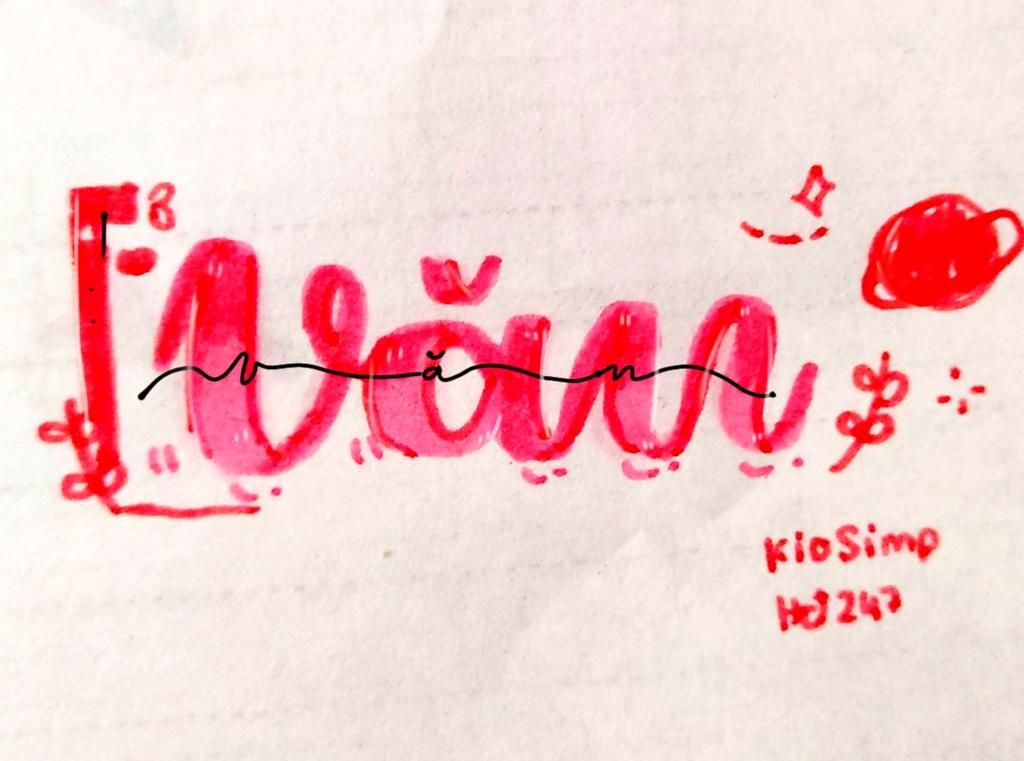 8
Văn
v ă n
KioSimp
Hơ̆247